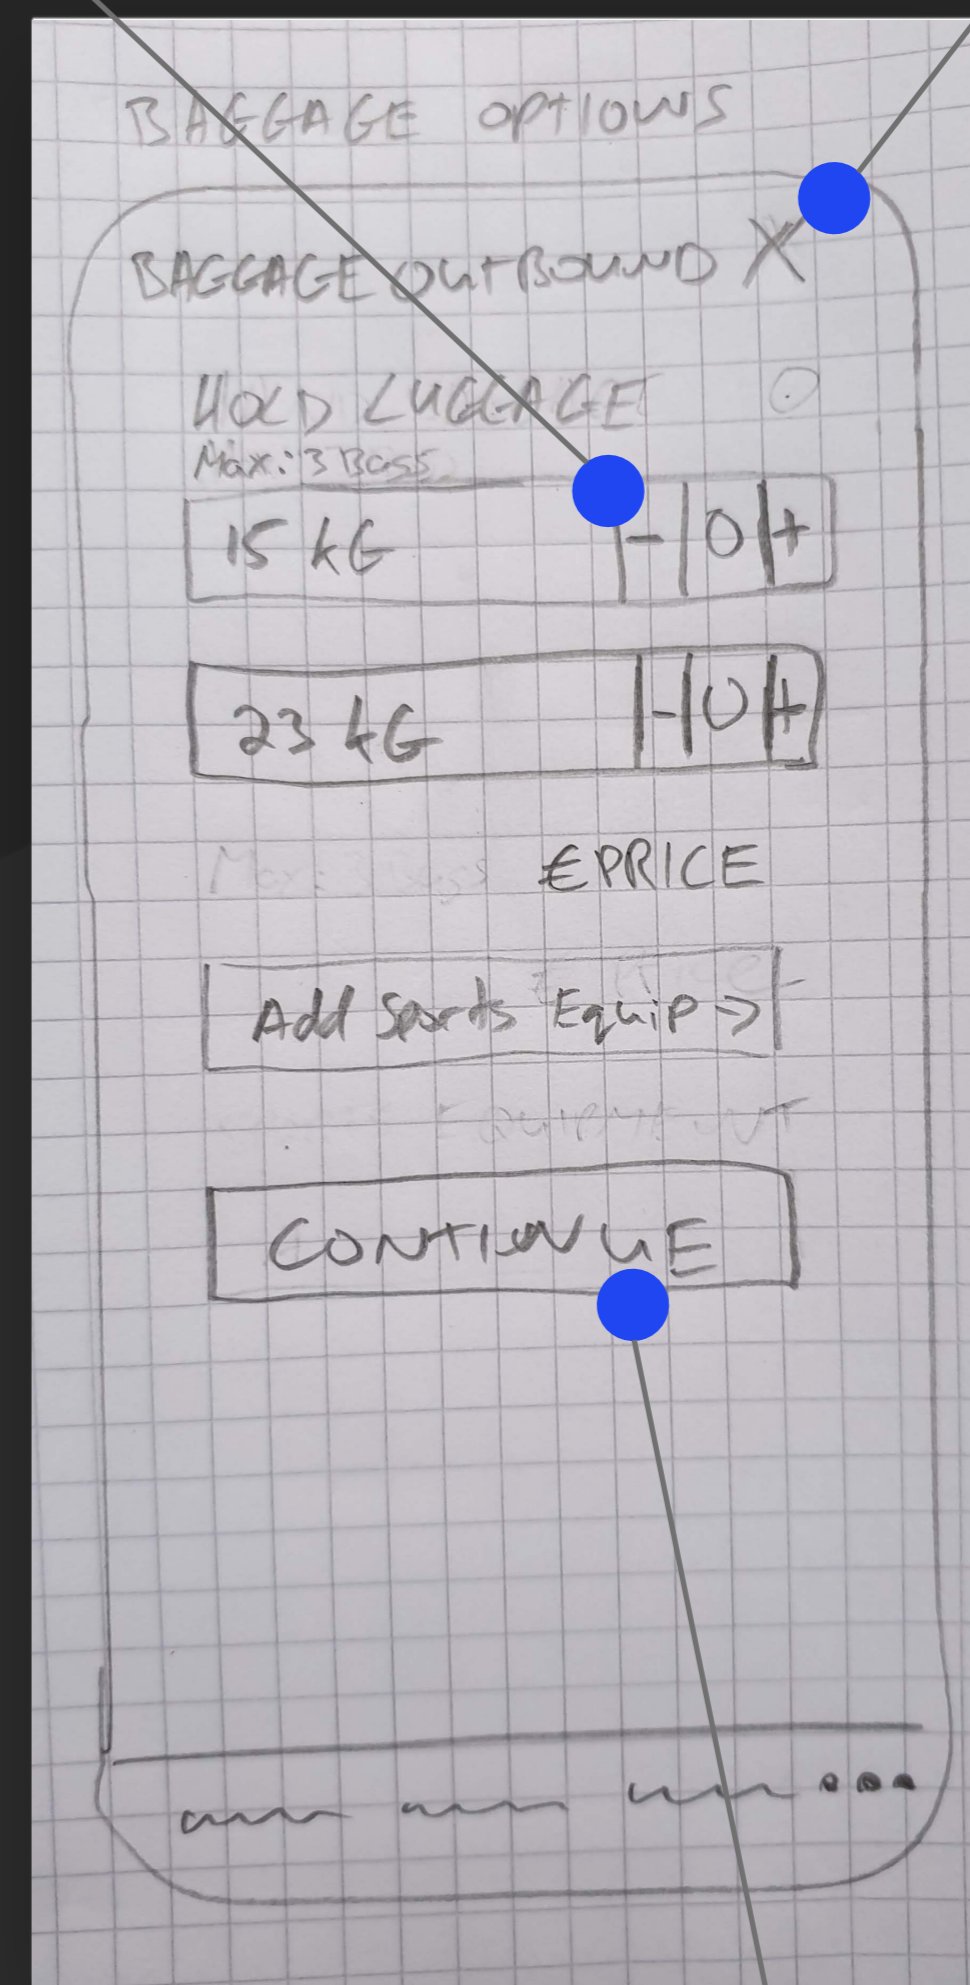 BAGGAGE OPTIONS
BAGGAGE OUTBOUND X
HOLD LUGGAGE
Max.: 3 Bags
15 KG - 0 +
23 KG - 0 +
€PRICE
Add Sports Equip ->
CONTINUE